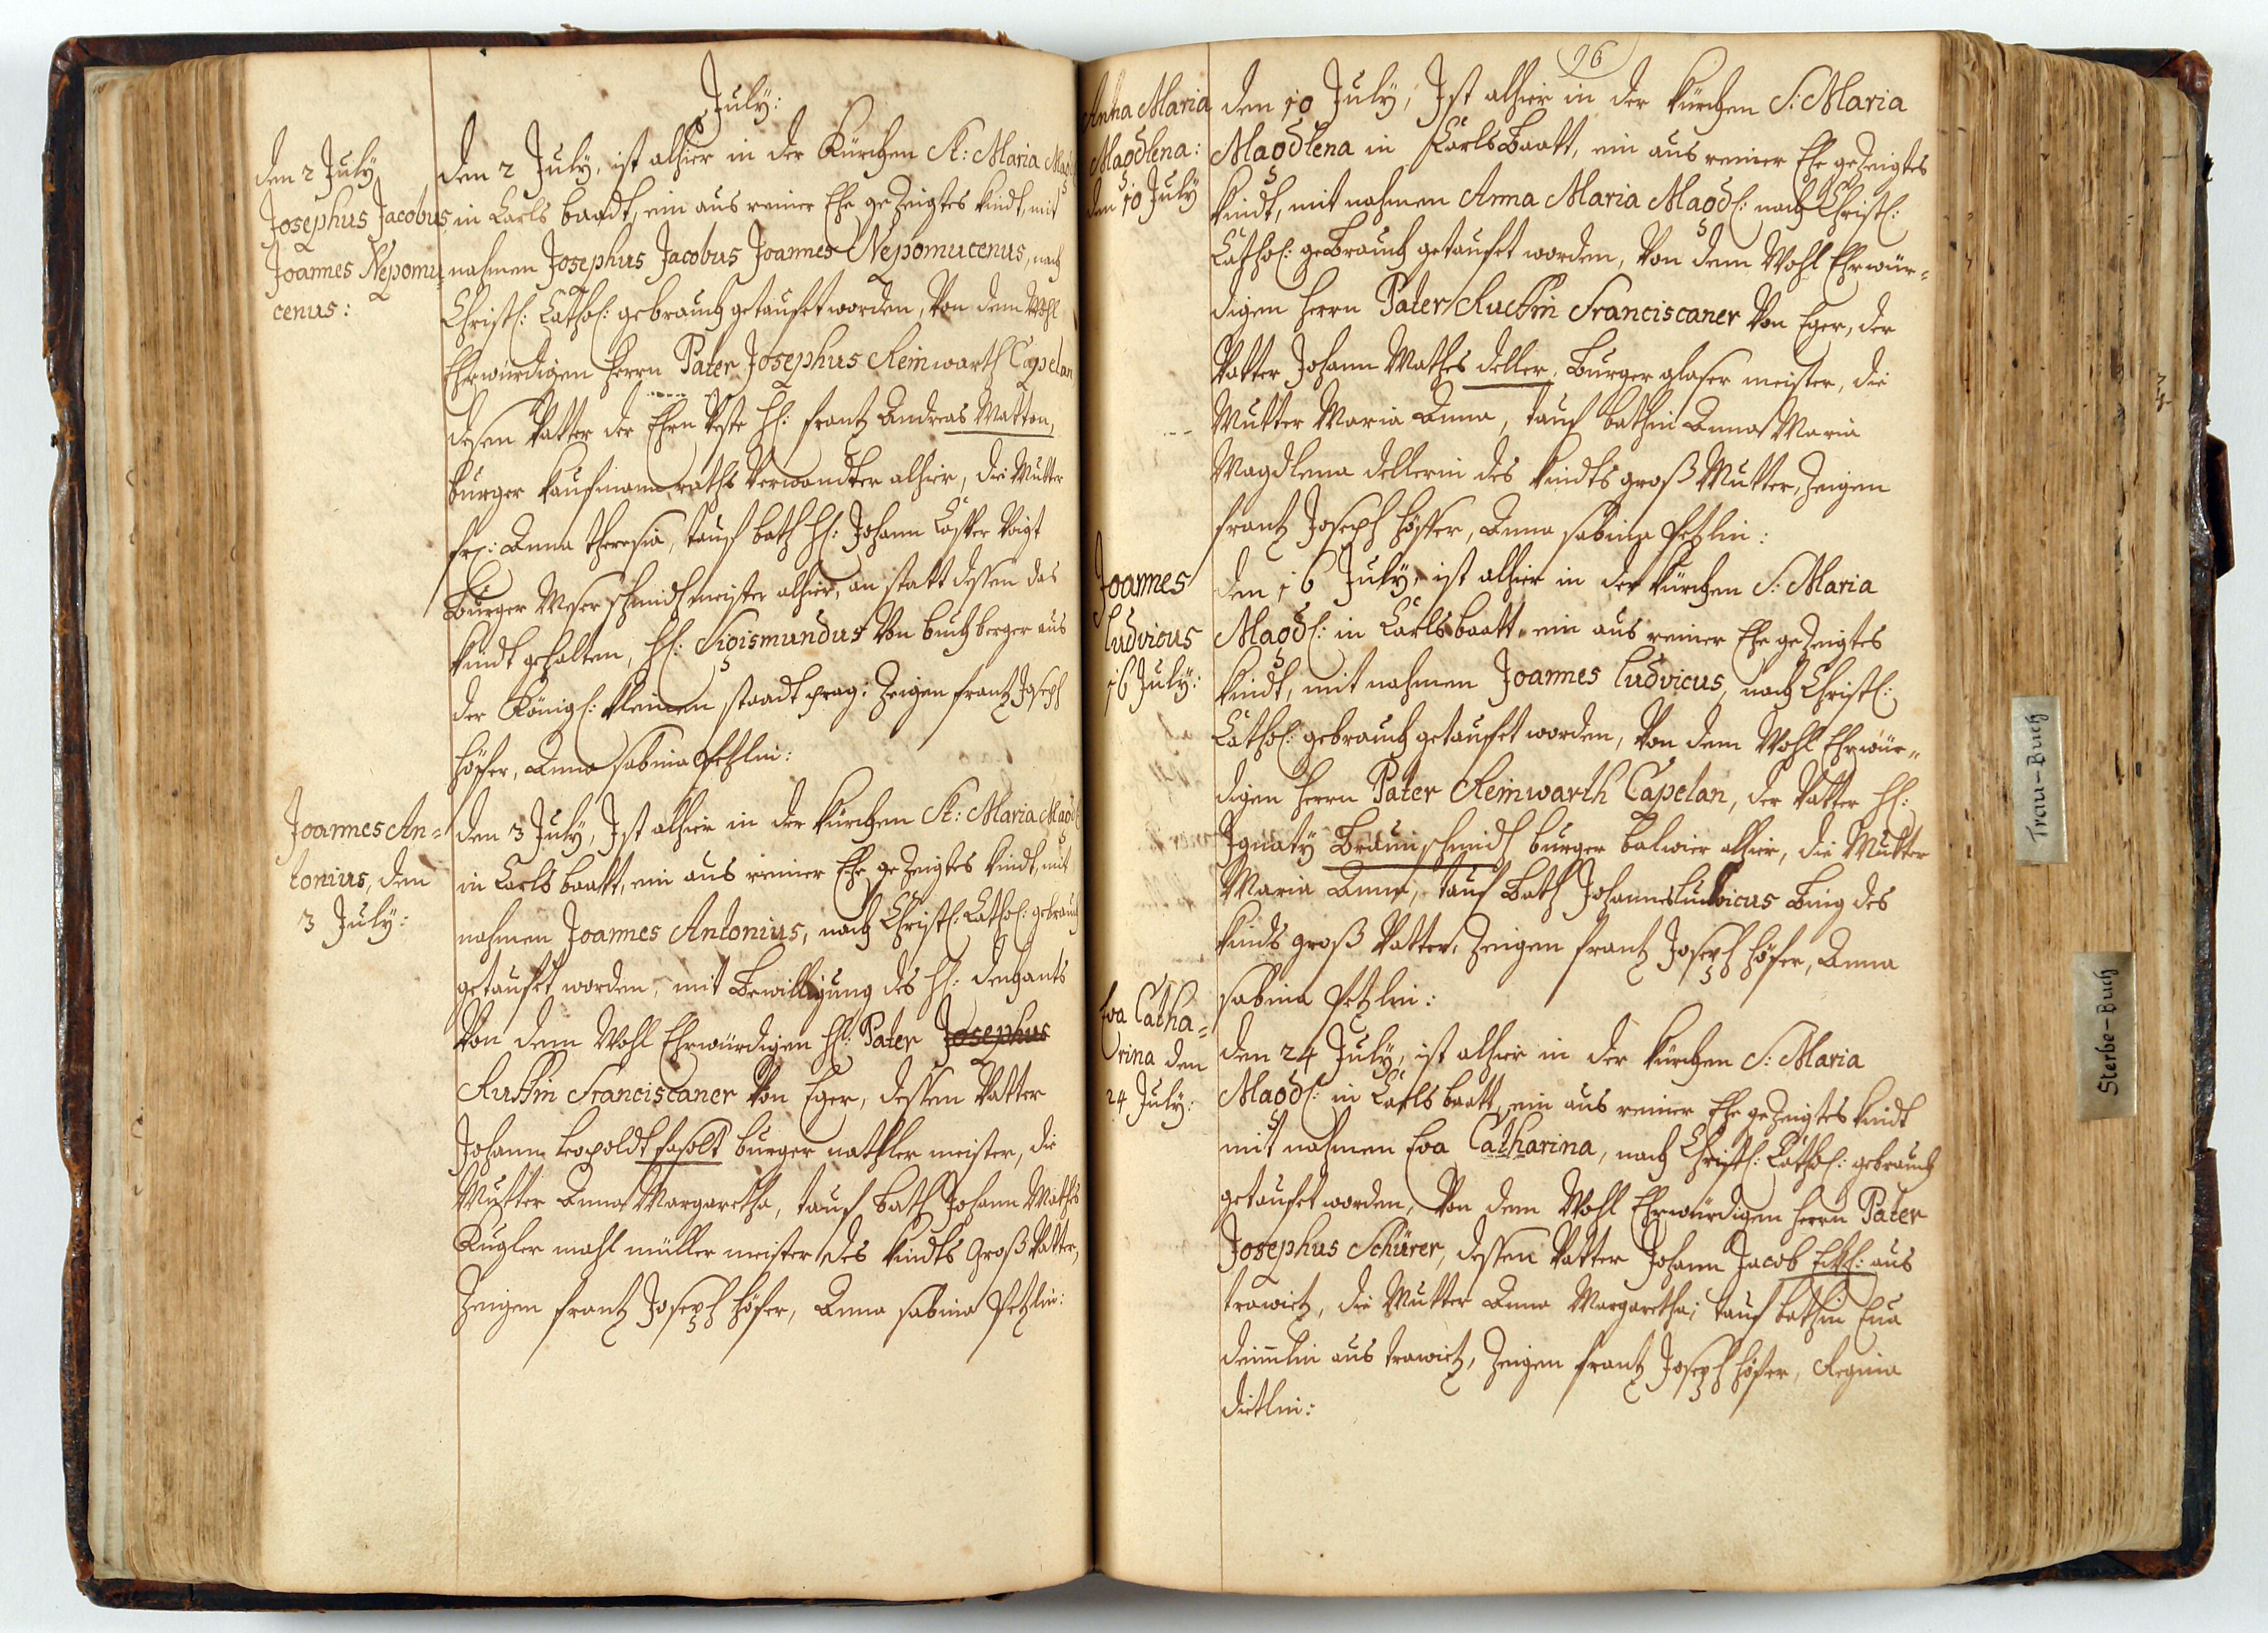 July:
den 2 July
Josephus Jacobus
Joannes Nepomu=
cenus:
den 2 July, ist alhier in der Kürchen St: Maria Magd
in Carls baadt, ein aus reiner Ehe gezeigtes Kindt, mit
nahmen Josephus Jacobus Joannes Nepomucenus, nach
Christl: Cathol: gebrauch getauft worden, Von dem Wohl
Ehrwürdigen Herrn Pater Josephus Reinwarth Capelan
dessen Vatter der Ehrn Veste H: Frantz Andreas Matton,
burger Kaufmann raths Verwandter alhier, die Mutter
Fr: Anna Theresia, tauf bath H: Johann Casper Voigt
Burger Meserschmidtmeister alhier, an statt dessen das
Kindt gehalten, H: Sigismundus Von buchberger aus
der Königl: Kleinen staadt prag: Zeigen Frantz Joseph
Höfer, Anna Sabina Petzlin:
Joannes An=
tonius, den
3 July:
den 3 July, Ist alhier in der Kürchen St: Maria Magd
in Carls baatt, ein aus reiner Ehe gezeigtes Kindt, mit
nahmen Joannes Antonius, nach Christl: Cathol: gebrauch
getauft worden, mit Bewilligung des H: Dechants
Von dem Wohl Ehrwürdigen H: Pater Josephus
Ruffin Franciscaner Von Eger, dessen Vatter
Johann Leopoldt Fasolt burger nathler meister, die
Mutter Anna Margaretha, tauf bath Johann Mathes
Kugler mahl müller meister des Kindts Groß Vatter,
Zeigen Frantz Joseph Höfer, Anna Sabina Petzlin:
96
Anna Maria
Magdlena:
den 10 July
den 10 July, Ist alhier in der Kürchen S: Maria
Magdlena in Karlsbaatt, ein aus reiner Ehe gezeigtes
Kindt, mit nahmen Anna Maria Magdl: nach Christl:
Cathol: gebrauch getauft worden, Von dem Wohl Ehrwür=
digen Herrn Pater Ruffin Franciscaner Von Eger, der
Vatter Johann Mathes Deller, Burger glaser meister, die
Mutter Maria Anna, tauf bathin Anna Maria
Magdlena Dellerin des Kindts groß Mutter, Zeigen
Frantz Joseph Höffer, Anna Sabina Petzlin:
Joannes
Ludvicus
16 July:
den 16 July, ist alhier in der Kürchen S: Maria
Magdl: in Carlsbaatt, ein aus reiner Ehe gezeigtes
Kindt, mit nahmen Joannes Ludvicus, nach Christl:
Cathol: gebrauch getauffet worden, Von dem Wohl Ehrwür=
digen Herrn Pater Reinwarth Capelan, der Vatter H:
Ignaty Braunschmidt burger balwier alhier, die Mutter
Maria Anna, tauf Bath Johannes Ludvicus Bing des
Kinds groß Vatter, Zeigen Frantz Joseph Höfer, Anna
Sabina Petzlin:
Eva Catha=
rina den
24 July:
den 24 July, ist alhier in der Kürchen S: Maria
Magdl: in Carlsbaatt, ein aus reiner Ehe gezeigtes Kindt
mit nahmen Eva Catharina, nach Christl: Cathol: gebrauch
getauft worden, Von dem Wohl Ehrwürdigen Herrn Pater
Josephus Schürer, dessen Vatter Johann Jacob aus
trawitz, die Mutter Anna Margaretha, tauf bathin Eua
aus trawitz, Zeigen Frantz Joseph Höfer, Regina
Dietlin:
Trau-Buch
Sterbe-Buch